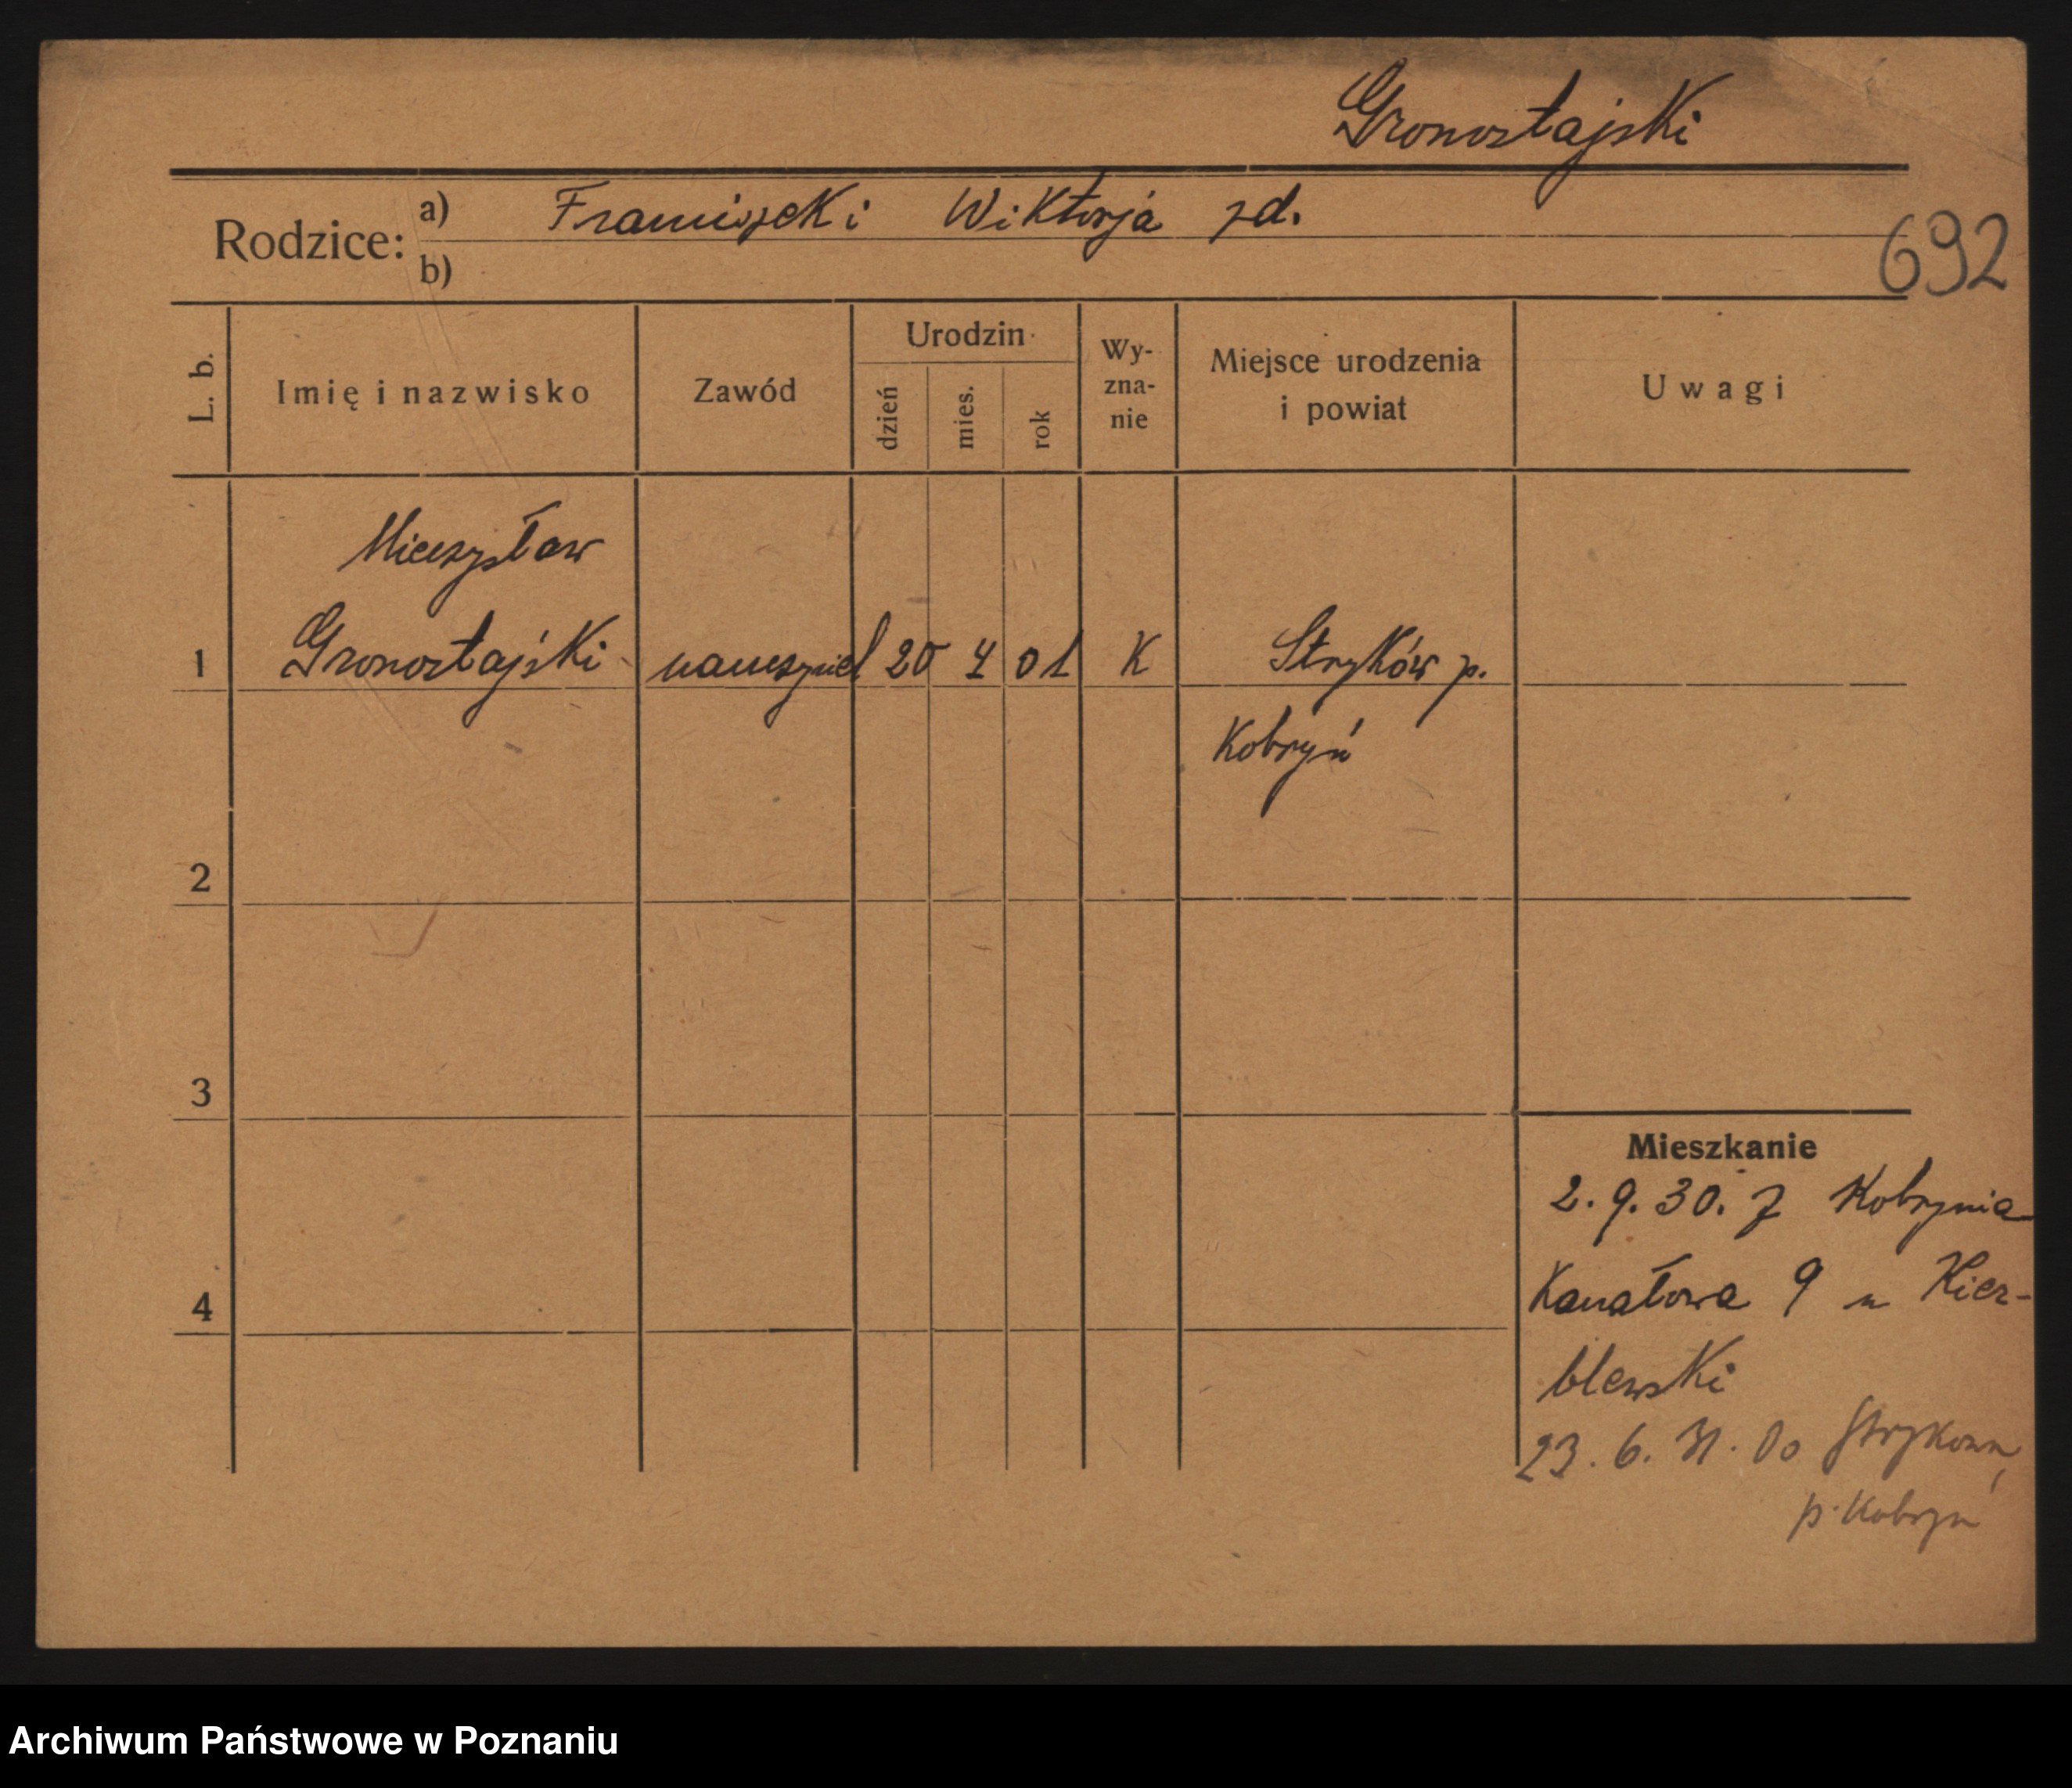 Gronostajski
Rodzice: a) Franciszek i Wiktorja zd.
b)
692
L. b.
Imię i nazwisko
Zawód
Urodzin
dzień
mies.
rok
Wy-
zna-
nie
Miejsce urodzenia
i powiat
Uwagi
Mieczysław
1 Gronostajski nauczyciel 20 4 01 K Stryków p.
Kobryń
2
3
4
Mieszkanie
2.9.30. z Kobrynia
Kanałowa 9 u Kier-
blewski
23.6.31. Do Strykowa,
p. Kobryń
Archiwum Państwowe w Poznaniu